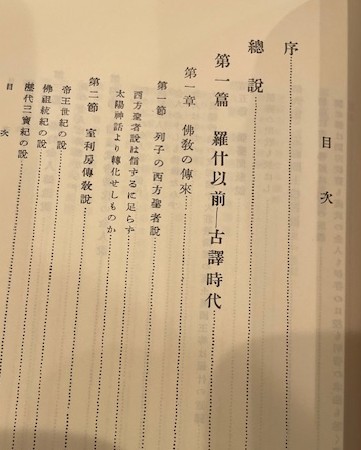 目次
序
總說
第一篇 羅什以前―古譯時代
第一章 佛敎の傳來
第一節 列子の西方聖者說
西方聖者說は信ずるに足らず
太陽神話より轉化せしものか
第二節 室利房傳敎說
帝王世紀の說
佛祖統紀の說
歷代三寶紀の說
目次